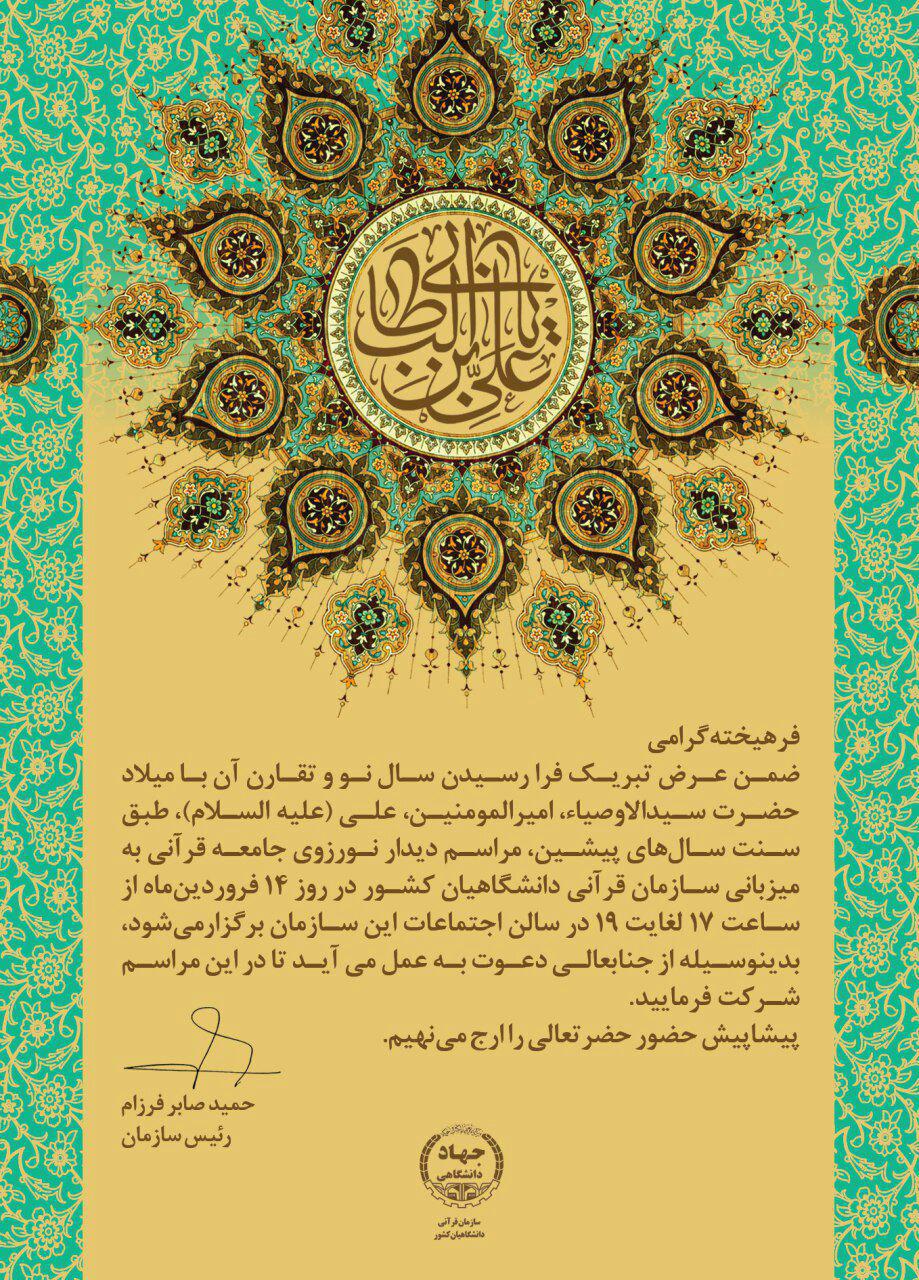 یا علی بن ابی طالب
فرهیخته گرامی
ضمن عرض تبریک فرا رسیدن سال نو و تقارن آن با میلاد
حضرت سیدالاوصیاء، امیرالمومنین، علی (علیه السلام)، طبق
سنت سال‌های پیشین، مراسم دیدار نورزوی جامعه قرآنی به
میزبانی سازمان قرآنی دانشگاهیان کشور در روز ۱۴ فروردین‌ماه از
ساعت ۱۷ لغایت ۱۹ در سالن اجتماعات این سازمان برگزارمی‌شود،
بدینوسیله از جنابعالی دعوت به عمل می آید تا در این مراسم
شرکت فرمایید.
پیشاپیش حضور حضرتعالی را ارج می‌نهیم.
حمید صابر فرزام
رئیس سازمان
جهاد
دانشگاهی
سازمان قرآنی
دانشگاهیان کشور